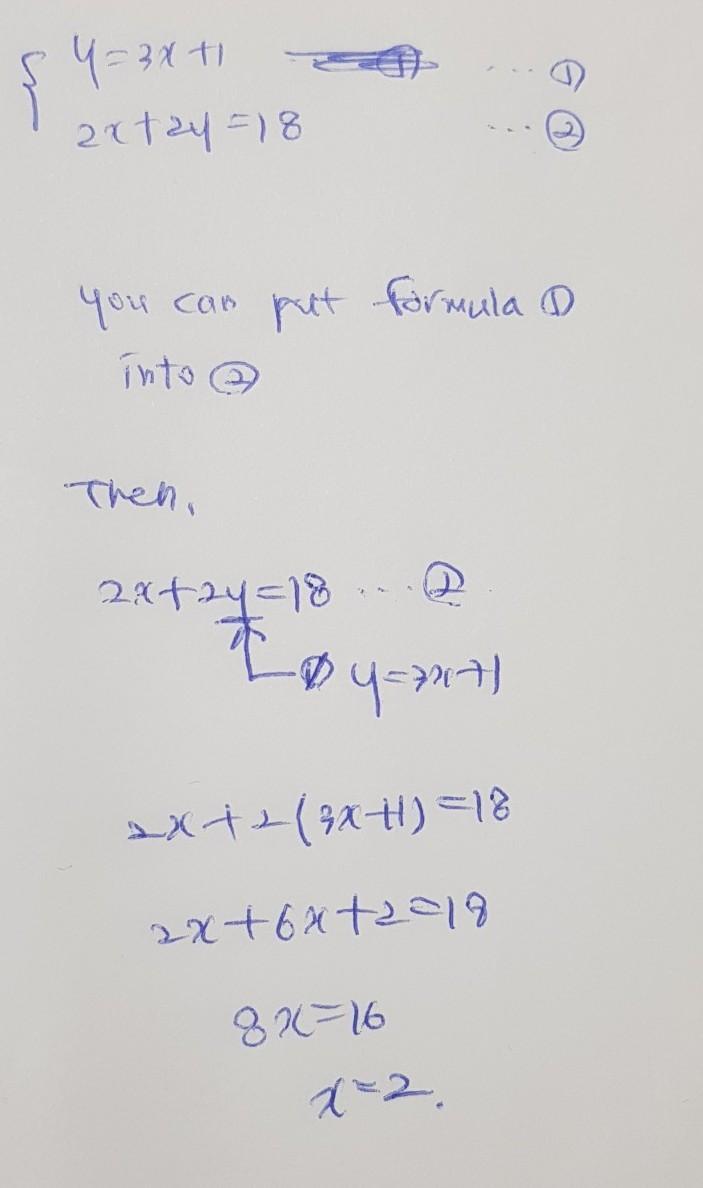 y=3x+1 ... ①
2x+2y=18 ... ②
you can put formula ①
into ②
Then,
2x+2y=18 ... ②
① y=3x+1
2x+2(3x+1)=18
2x+6x+2=18
8x=16
x=2.